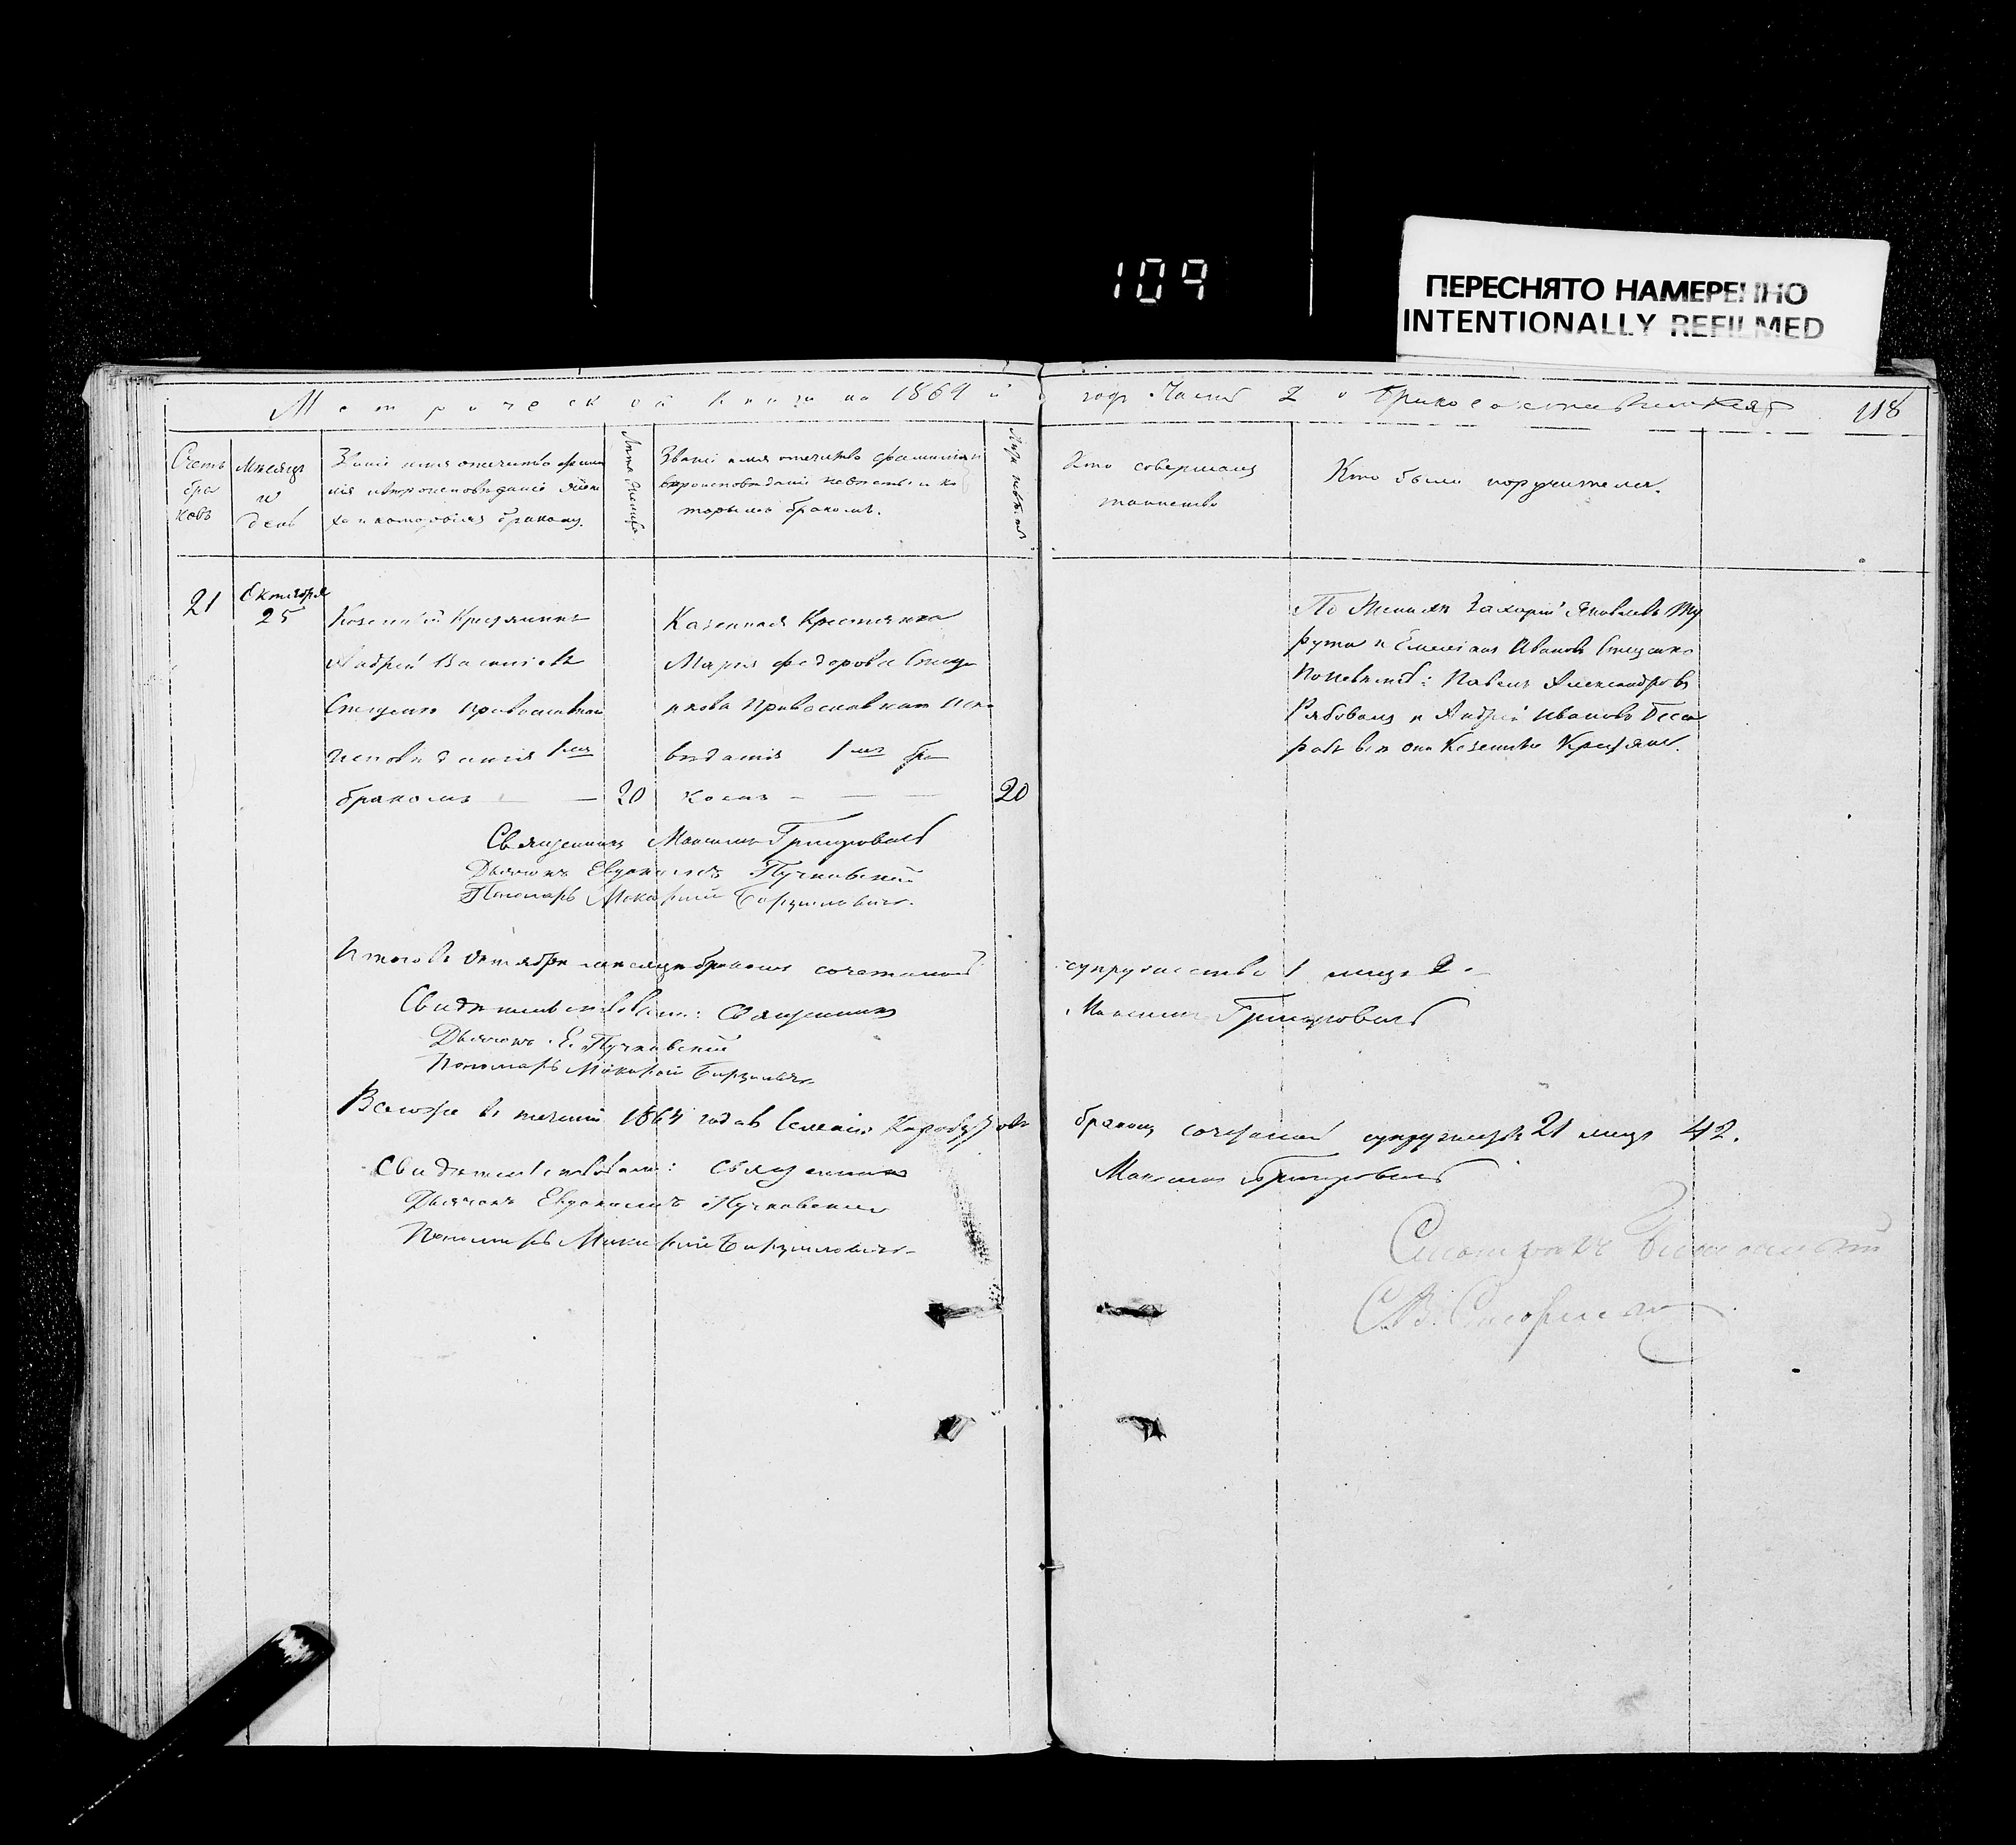 109
ПЕРЕСНЯТО НАМЕРЕННО
INTENTIONALLY REFILMED
Метрической книги на 1864 й годъ Часть 2 о бракосочетавшихся 118
Счетъ бра ковъ
Мѣсяцъ и день
Званіе имя отечество фами
лія и вѣроисповѣданіе жени
ха и которымъ бракомъ.
Лѣта жениха
Званіе имя отечество фамилія и
вѣроисповѣданіе невѣсты и ко
торымъ бракомъ.
Лѣта невѣсты
Кто совершалъ
таинство
Кто были поручители.
21
Октября
25
Казенный Крестьянинъ
Андрей Васильевъ
Стеценко православнаго
исповѣданія 1мъ
бракомъ — — 20
Казенная Крестьянка
Марія Федорова Стеце
нкова Православнаго испо
вѣданія 1мъ бра
комъ — — — 20
По Женихѣ Захарій Яковлевъ
и Емеліанъ Ивановъ Стеценко
По невѣстѣ: Павелъ Александровъ
и Андрей Ивановъ
всѣ они Казенные Крестьяне.
Священникъ Максимъ Григоровичъ
Дьячокъ Евдокимъ Пучковскій
Пономарь Макарій
Итого въ Октябрѣ мѣсяцѣ бракомъ сочетаній супружество 1 лицъ 2.
Свидѣтельствовали: Священникъ Максимъ Григоровичъ
Дьячокъ Е. Пучковскій
Пономарь Макарій
Всего же въ теченіи 1864 года въ селеніи бракомъ сочетаній супружествъ 21 лицъ 42.
Свидѣтельствовали: Священникъ Максимъ Григоровичъ
Дьячокъ Евдокимъ Пучковскій
Пономарь Макарій
Смотрѣлъ Благочинный
С.В.